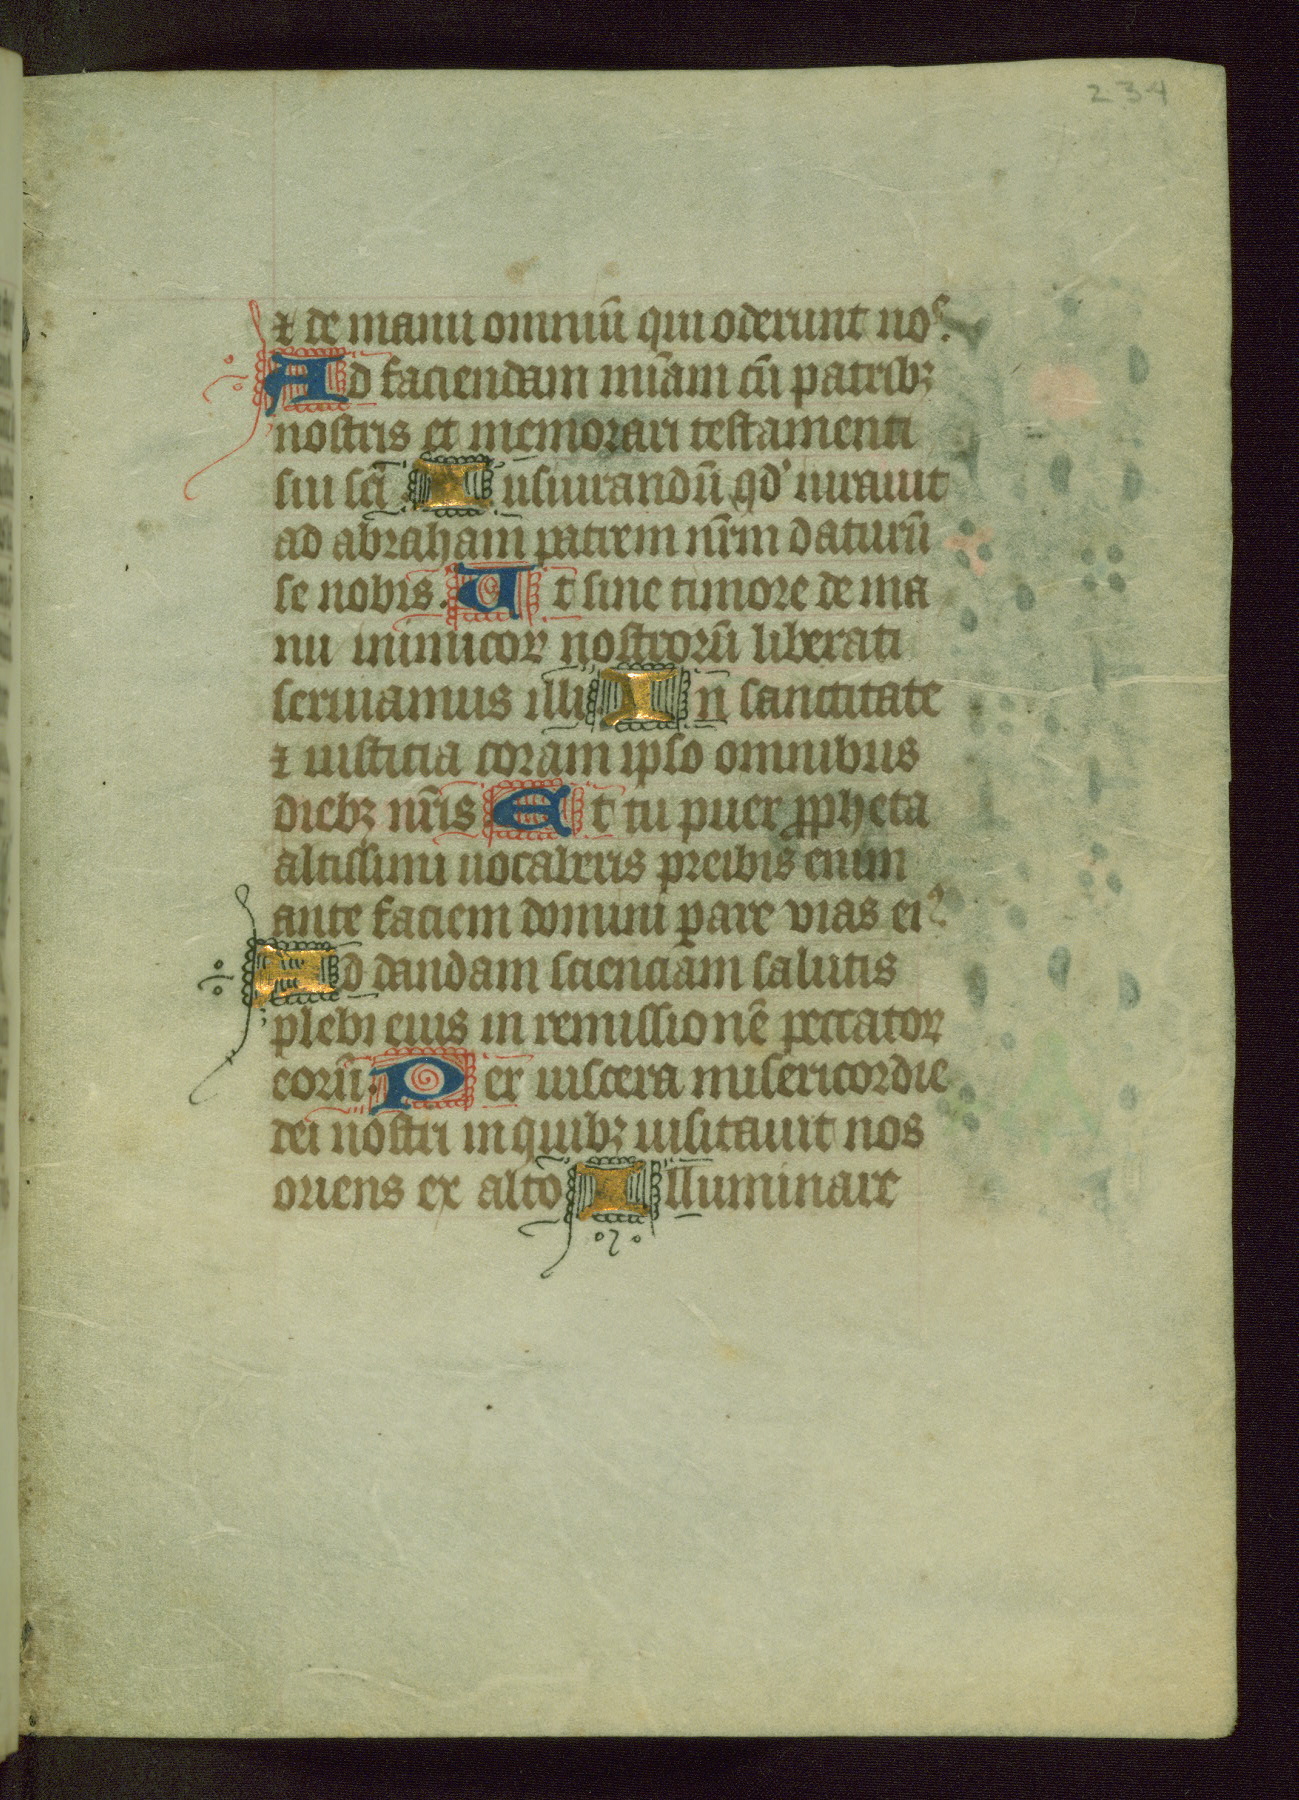 234
⁊ de manu omniū qui oderunt nos.
Ad faciendam mīam cū patribꝫ
nostris et memorari testamenti
sui scī Iusiurandū qd' iurauit
ad abraham patrem nr̄m daturū
se nobis. Ut sine timore de ma
nu inimicoꝝ nostrorū liberati
seruiamus illi In sanctitate
⁊ iusticia coram ipso omnibus
diebꝫ nr̄is Et tu puer ꝓpheta
altissimi uocaberis preibis enim
ante faciem domini ꝑare vias eiꝰ
Ad dandam scienciam salutis
plebi eius in remissionē peccatoꝝ
eorū. Per uiscera misericordie
dei nostri in quibꝫ uisitauit nos
oriens ex alto Illuminare